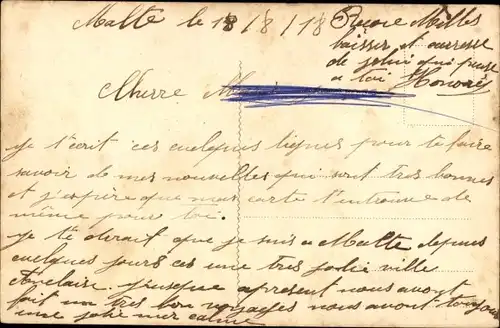 Malte le 18/8/18
Encore Milles
baisser et caresse
de celui qui pense
a toi Honoré
Cherre
je t'écrit ces quelques lignes pour te faire
savoir de mes nouvelles qui sont tres bonnes
et j'espère que ma carte t'entrouve de
même pour toi.
je te dirait que je suis a Malte depuis
quelques jours ces une tres jolie ville
jusque apresent nous avont
fait un tres bon voyages nous avont toujour
une jolie mer calme